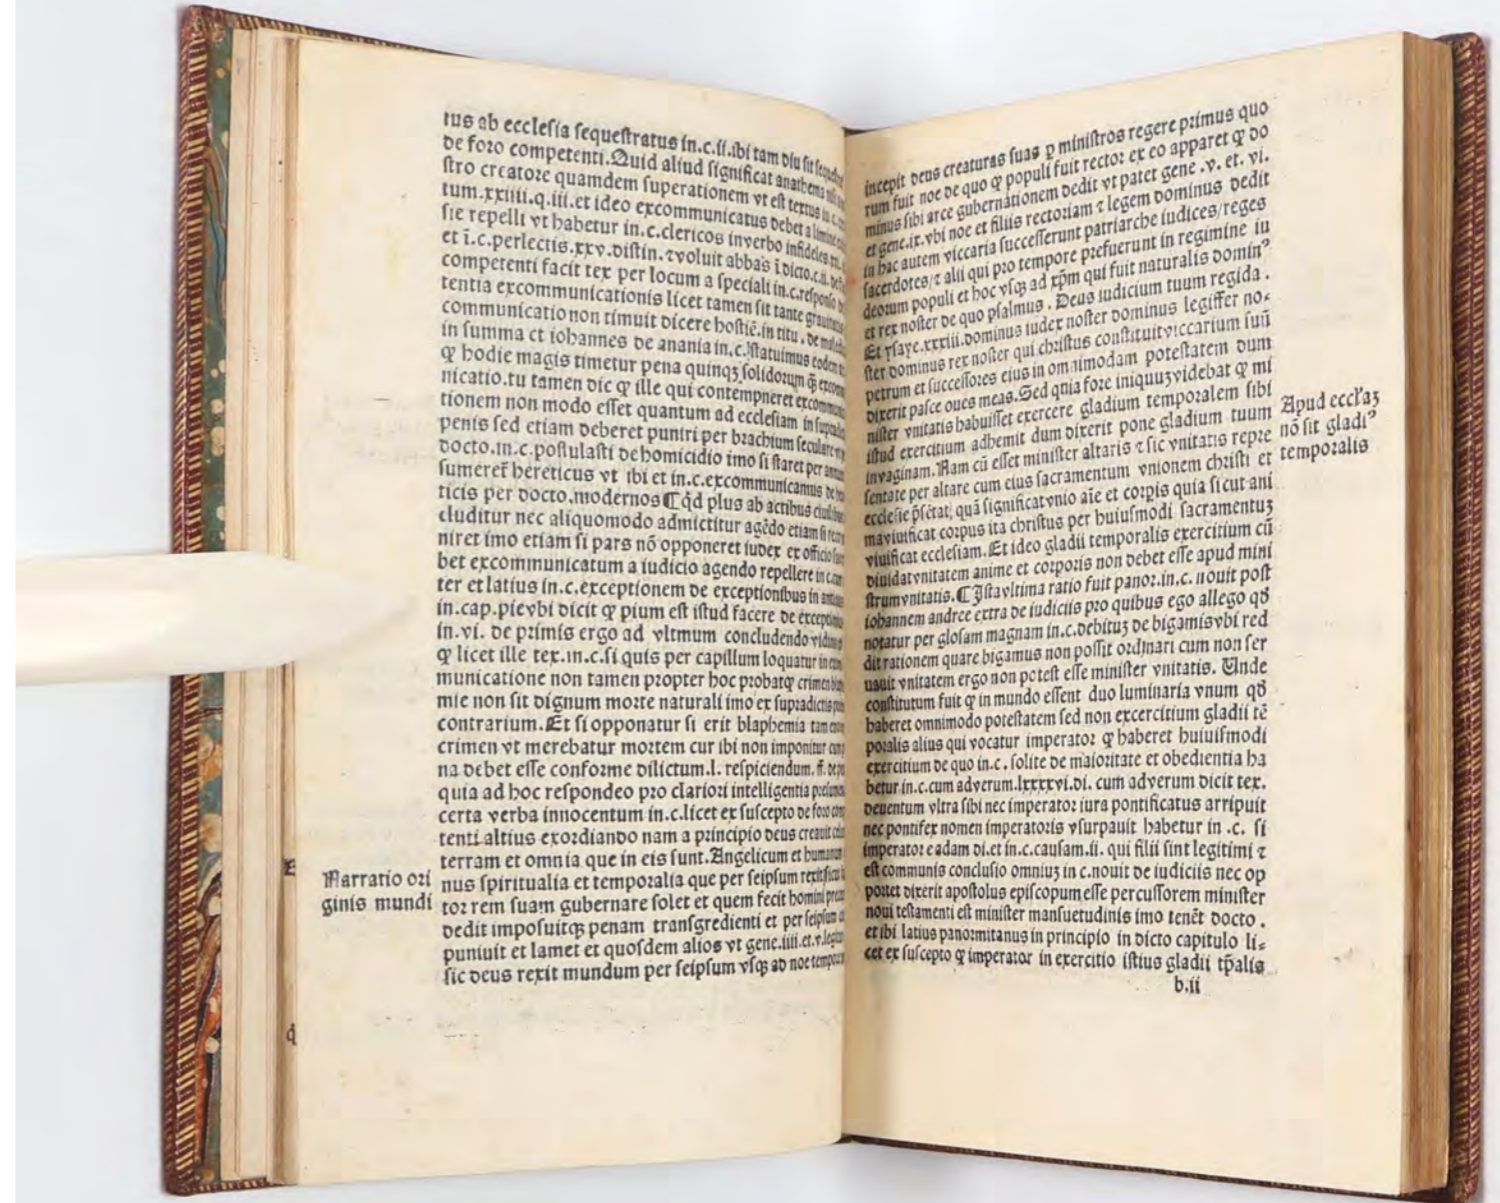 tus ab ecclesia sequestratus in.c.ii.ibi tam diu sit
de foro competenti.Quid aliud significat anathema
stro creatore quamdem superationem vt est textus in
tum.xxiiii.q.iii.et ideo excommunicatus debet a limine
sie repelli vt habetur in.c.clericos inverbo infideles
et ī.c.perlectis.xxv.distin.⁊voluit abbas ī dicto.c.ii.
competenti facit tex per locum a speciali in.c.responso
tentia excommunicationis licet tamen sit tante
communicatio non timuit dicere hostiē.in titu. de
in summa et iohannes de anania in.c.statuimus eodem
ꝙ hodie magis timetur pena quinqꝫ solidorum q̄̃
nicatio.tu tamen dic ꝙ ille qui contempneret
tionem non modo esset quantum ad ecclesiam in
penis sed etiam deberet puniri per brachium seculare
docto.in.c.postulasti de homicidio imo si staret per
sumereī hereticus vt ibi et in.c.excommunicamus de
ticis per docto.modernos ¶ qd̄ plus ab actibus
cluditur nec aliquomodo admictitur agēdo etiam si
niret imo etiam si pars nō opponeret iudex ex officio
bet excommunicatum a iudicio agendo repellere in
ter et latius in.c.exceptionem de exceptionibus in
in.cap.pievbi dicit ꝙ pium est istud facere de
in.vi. de primis ergo ad vltmum concludendo
ꝙ licet ille tex.in.c.si quis per capillum loquatur in
municatione non tamen propter hoc probatꝗ crimen
mie non sit dignum morte naturali imo ex supradictis
contrarium.Et si opponatur si erit blaphemia tam
crimen vt merebatur mortem cur ibi non imponitur
na debet esse conforme dilictum.l. respiciendum. ff. de
quia ad hoc respondeo pro clariori intelligentia
certa verba innocentum in.c.licet ex suscepto de foro
tenti altius exordiando nam a principio deus creauit
terram et omnia que in eis sunt.Angelicum et
Narratio ori
ginis mundi
nus spiritualia et temporalia que per seipsum
tor rem suam gubernare solet et quem fecit homini
dedit imposuitqꝫ penam transgredienti et per seipsum
puniuit et lamet et quosdem alios vt gene.iiii.et.v.
sic deus rexit mundum per seipsum vsqꝫ ad noe
incepit deus creaturas suas ꝑ ministros regere primus quo
rum fuit noe de quo ꝙ populi fuit rector ex eo apparet ꝙ do
minus sibi arce gubernationem dedit vt patet gene .v. et. vi.
et gene.ix.vbi noe et filiis rectoriam ⁊ legem dominus dedit
in hac autem viccaria successerunt patriarche iudices/reges
sacerdotes/⁊ alii qui pro tempore prefuerunt in regimine iu
deorum populi et hoc vsqꝫ ad xp̄m qui fuit naturalis dominꝰ
et rex noster de quo psalmus . Deus iudicium tuum regida .
Et ysaye.xxxiii.dominus iudex noster dominus legiffer no⸗
ster dominus rex noster qui christus constituitviccarium suū
petrum et successores eius in omnimodam potestatem dum
dixerit pasce oues meas.Sed quia fore iniquuꝫvidebat ꝙ mi
nister vnitatis habuisset exercere gladium temporalem sibi
istud exercitium adhemit dum dixerit pone gladium tuum
invaginam.Nam cū esset minister altaris ⁊ sic vnitatis repre
sentate per altare cum eius sacramentum vnionem christi et
ecclesie p̄sētat, quā significatvnio aīe et corpis quia sicut ani
maviuificat corpus ita christus per huiusmodi sacramentuꝫ
viuificat ecclesiam.Et ideo gladii temporalis exercitium cū
diuidatvnitatem anime et corporis non debet esse apud mini
strumvnitatis.¶ Istavltima ratio fuit panor.in.c. nouit post
iohannem andree extra de iudiciis pro quibus ego allego qd̄
notatur per glosam magnam in.c.debituꝫ de bigamisvbi red
dit rationem quare bigamus non possit ordinari cum non ser
uauit vnitatem ergo non potest esse minister vnitatis. Unde
constitutum fuit ꝙ in mundo essent duo luminaria vnum qd̄
haberet omnimodo potestatem sed non excercitium gladii tē
poralis alius qui vocatur imperator ꝙ haberet huiuismodi
exercitium de quo in.c. solite de maioritate et obedientia ha
betur in.c.cum adverum.lxxxxvi.di. cum adverum dicit tex.
deuentum vltra sibi nec imperator iura pontificatus arripuit
nec pontifex nomen imperatoris vsurpauit habetur in .c. si
imperator eadam di.et in.c.causam.ii. qui filii sint legitimi ⁊
est communis conclusio omniuꝫ in c.nouit de iudiciis nec op
portet dixerit apostolus episcopum esse percussorem minister
noui testamenti est minister mansuetudinis imo tenēt docto .
et ibi latius panormitanus in principio in dicto capitulo li⸗
cet ex suscepto ꝙ imperator in exercitio istius gladii tp̄alis
Apud eccl'aꝫ
nō sit gladiꝰ
temporalis
b.ii